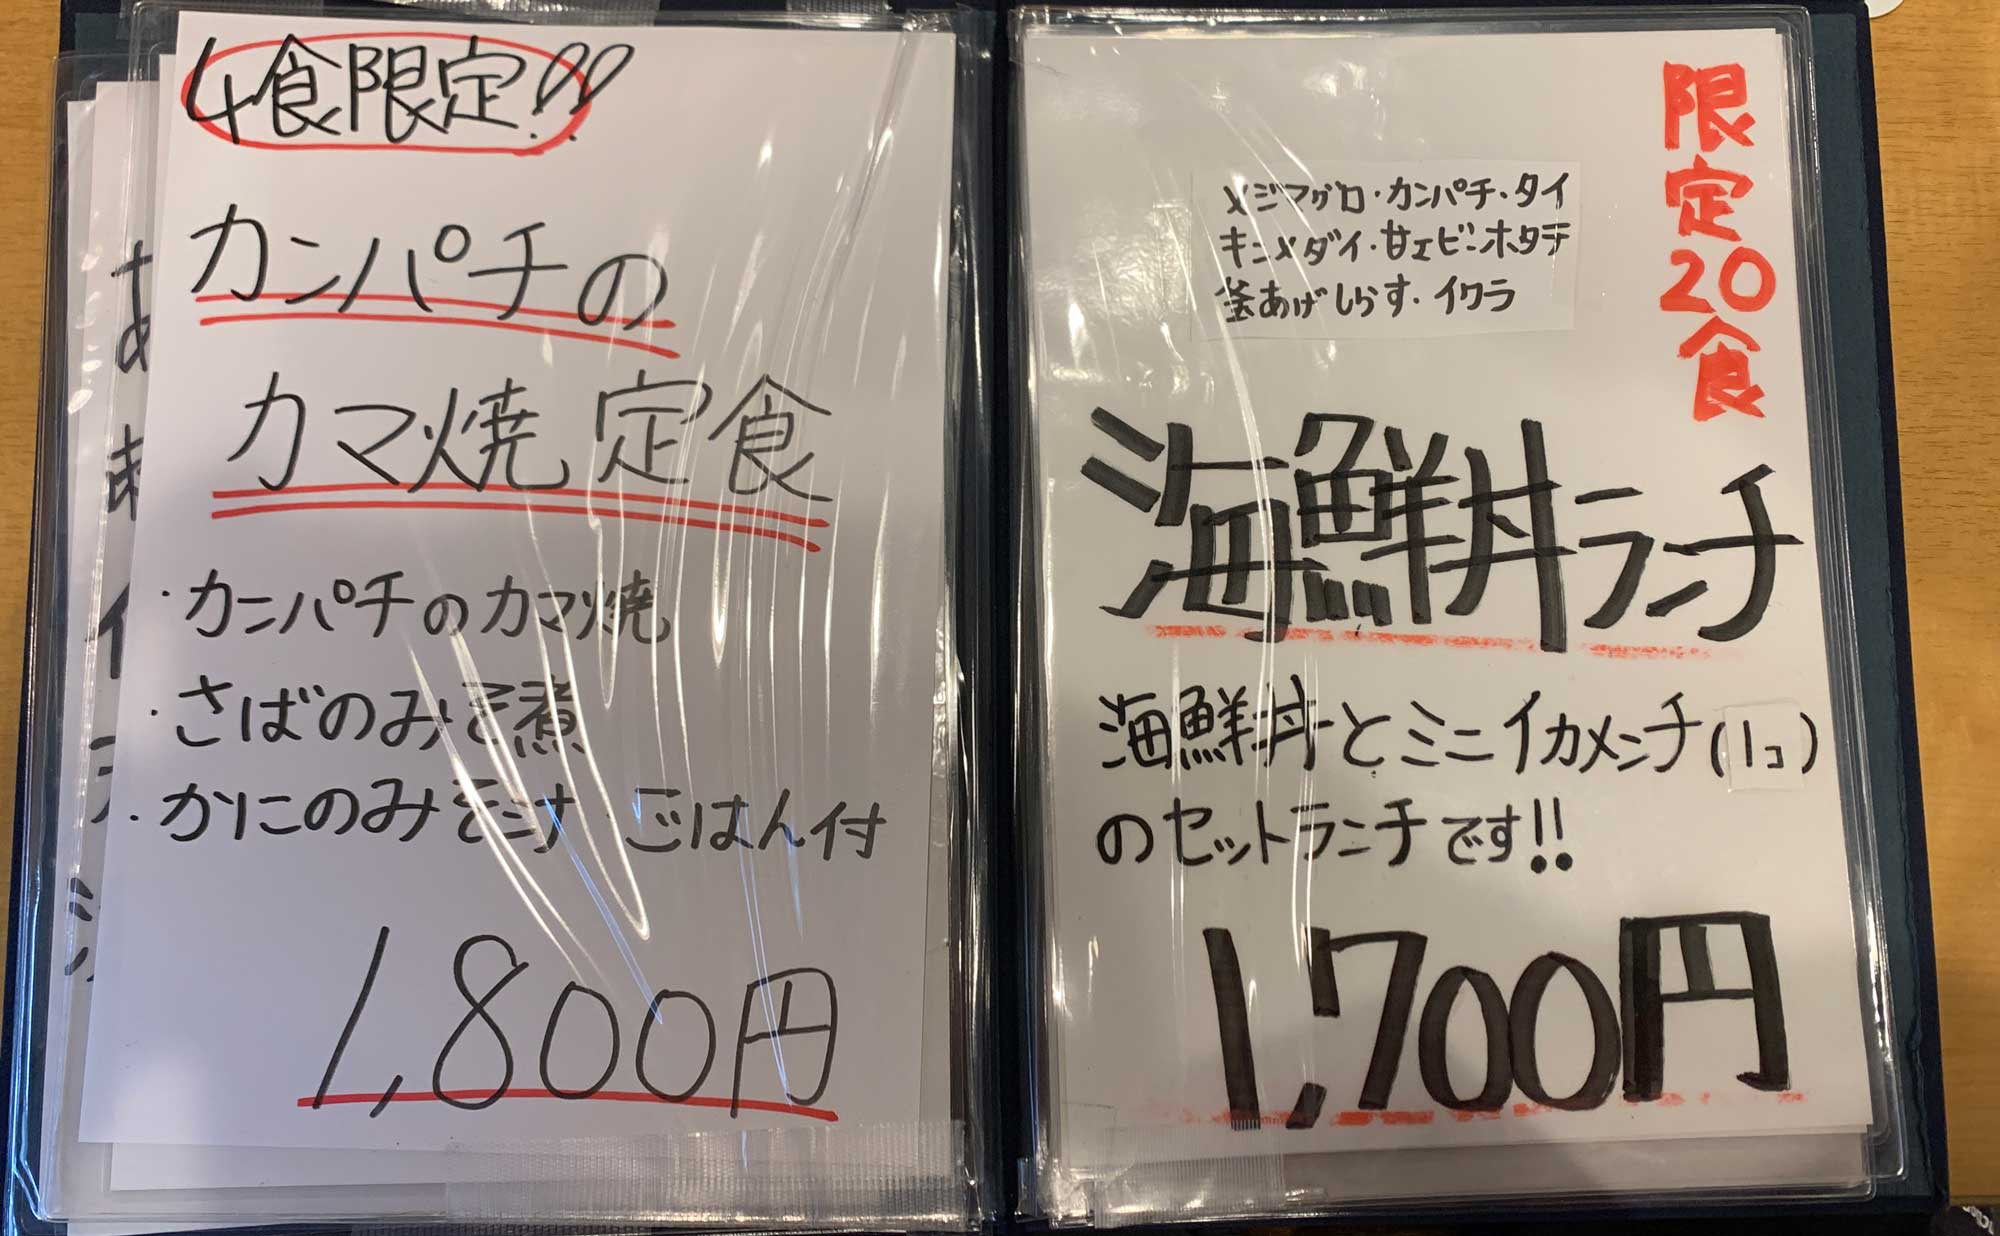 4食限定!!
カンパチの
カマ焼定食
・カンパチのカマ焼
・さばのみそ煮
・かにのみそ汁 ごはん付
1,800円
限定20食
メジマグロ・カンパチ・タイ
キンメダイ・甘エビ・ホタテ
釜あげしらす・イクラ
海鮮丼ランチ
海鮮丼とミニイカメンチ(1コ)
のセットランチです!!
1,700円